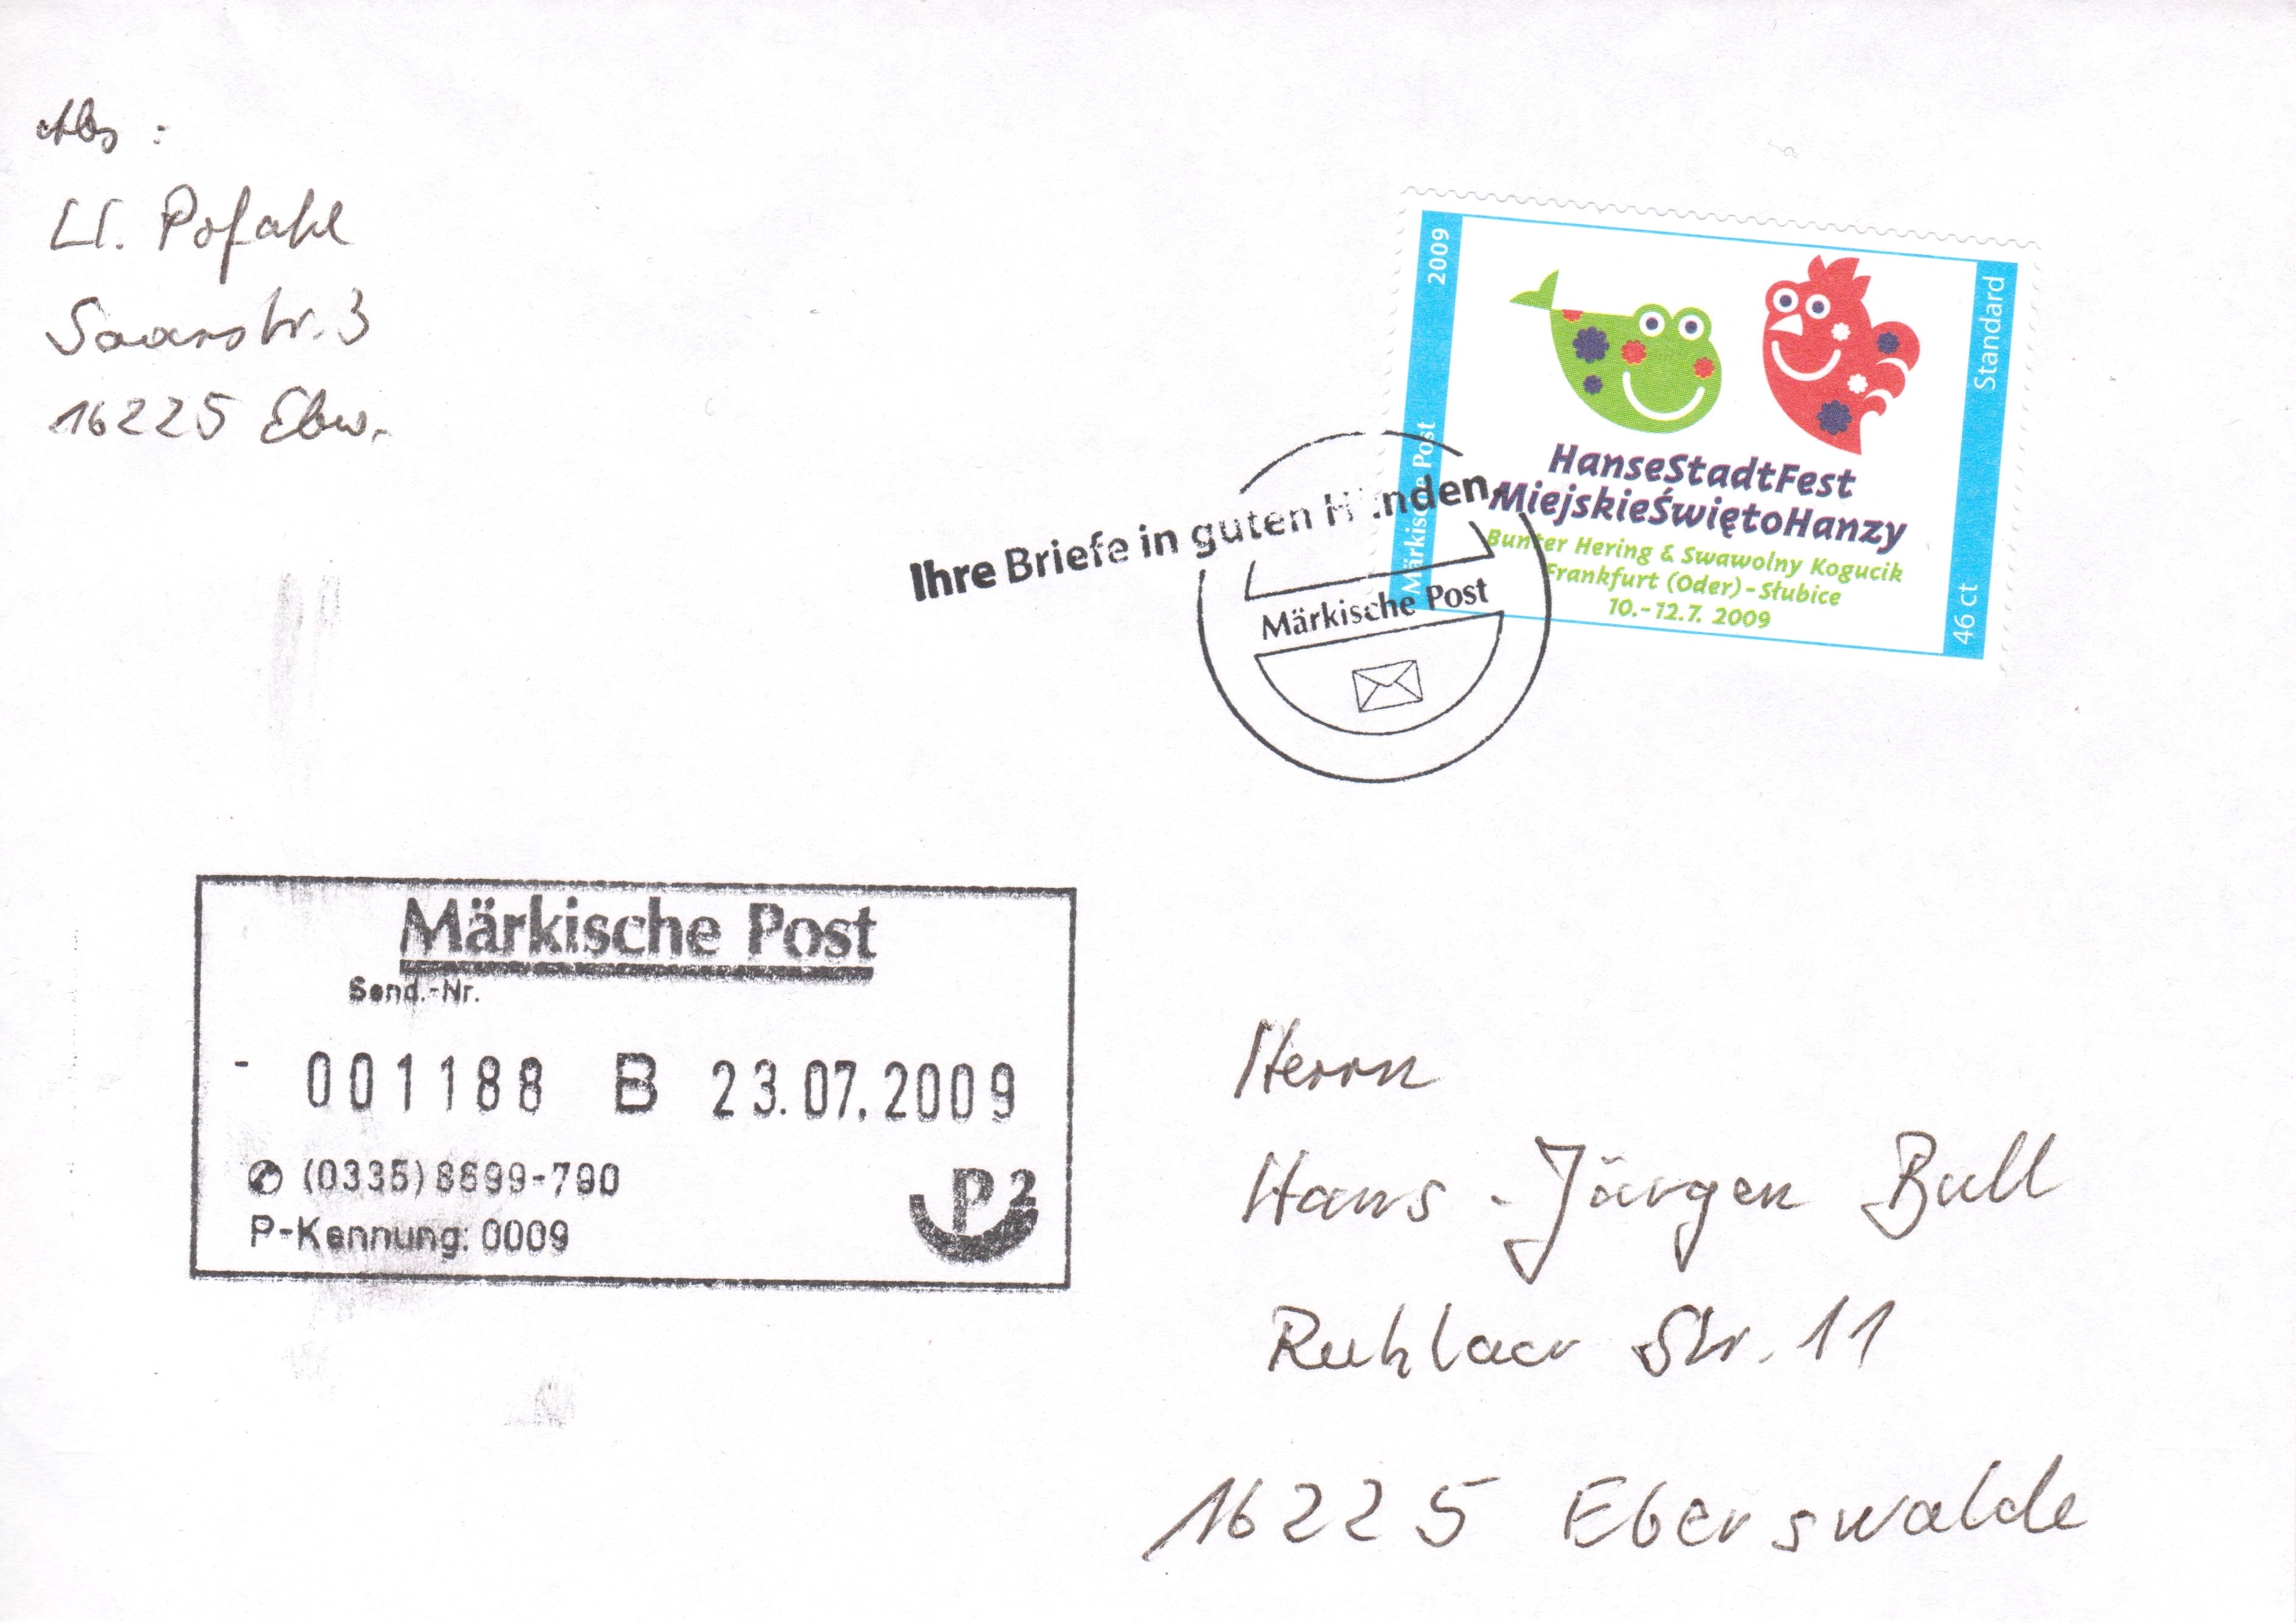 Abs :
Pofahl
Saarstr. 3
16225 Ebw.
2009
Märkische Post
Standard
46 ct
HanseStadtFest
MiejskieŚwiętoHanzy
Bunter Hering & Swawolny Kogucik
Frankfurt (Oder) - Słubice
10.-12.7. 2009
Ihre Briefe in guten Händen.
Märkische Post
Märkische Post
Send.-Nr.
- 001188 B 23.07.2009
(0335) 8899-790
P-Kennung: 0009
P2
Herrn
Hans-Jürgen Bull
Ruhlaer Str. 11
16225 Eberswalde